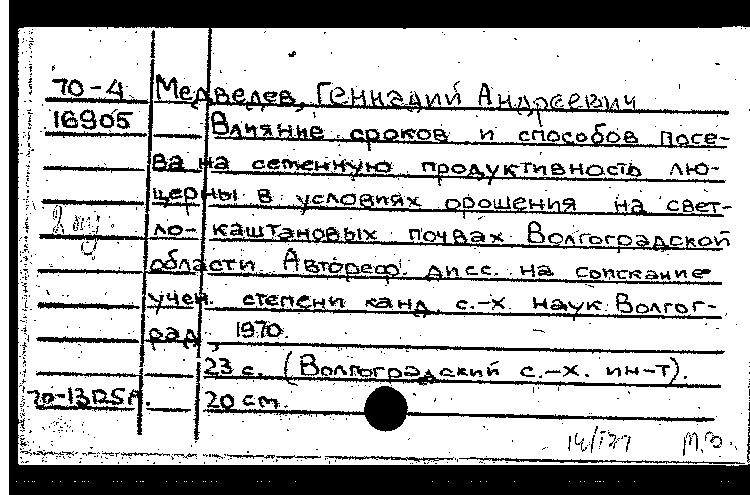 70-4 Медведев, Геннадий Андреевич
16905 Влияние сроков и способов посе-
ва на семенную продуктивность лю-
церны в условиях орошения на свет-
ло-каштановых почвах Волгоградской
области. Автореф. дисс. на соискание
учен. степени канд. с.-х. наук. Волгог-
рад, 1970.
23 с. (Волгоградский с.-х. ин-т).
20 см.